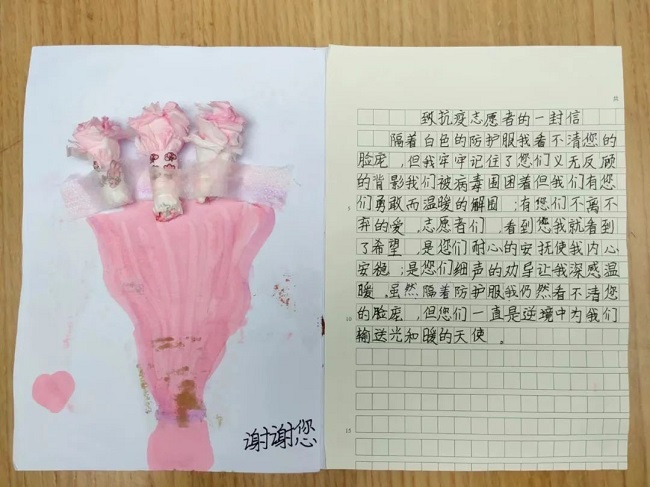 谢谢您
致抗疫志愿者的一封信
隔着白色的防护服我看不清您的
脸庞,但我牢牢记住了您们义无反顾
的背影我们被病毒围困着但我们有您
们勇敢而温暖的解围;有您们不离不
弃的爱,志愿者们,看到您我就看到
了希望,是您们耐心的安抚使我内心
安稳;是您们细声的劝导让我深感温
暖,虽然隔着防护服我仍然看不清您
的脸庞,但您们一直是逆境中为我们
输送光和暖的天使。
5
10
15